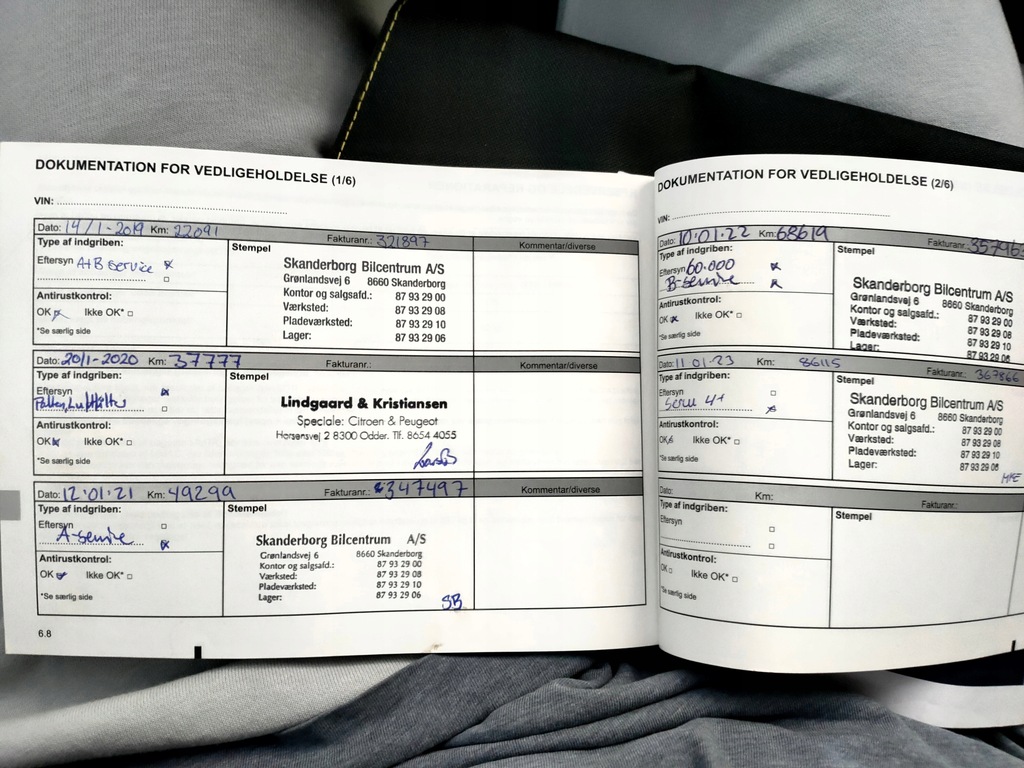 DOKUMENTATION FOR VEDLIGEHOLDELSE (1/6)
VIN:
Dato: 14/1-2019 Km: 22091 Fakturanr.: 321897 Kommentar/diverse
Type af indgriben:
Stempel
Eftersyn A+B service
Skanderborg Bilcentrum A/S
Grønlandsvej 6 8660 Skanderborg
Kontor og salgsafd.: 87 93 29 00
Værksted: 87 93 29 08
Pladeværksted: 87 93 29 10
Lager: 87 93 29 06
Antirustkontrol:
OK Ikke OK*
*Se særlig side
Dato: 20/1-2020 Km: 37777 Fakturanr.: Kommentar/diverse
Type af indgriben:
Stempel
Eftersyn
Lindgaard & Kristiansen
Speciale: Citroen & Peugeot
Horsensvej 2 8300 Odder. Tlf. 8654 4055
Antirustkontrol:
OK Ikke OK*
*Se særlig side
Dato: 12.01.21 Km: 49299 Fakturanr.: 347497 Kommentar/diverse
Type af indgriben:
Stempel
Eftersyn
A-service
Skanderborg Bilcentrum A/S
Grønlandsvej 6 8660 Skanderborg
Kontor og salgsafd.: 87 93 29 00
Værksted: 87 93 29 08
Pladeværksted: 87 93 29 10
Lager: 87 93 29 06
SB
Antirustkontrol:
OK Ikke OK*
*Se særlig side
6.8
DOKUMENTATION FOR VEDLIGEHOLDELSE (2/6)
VIN:
Dato: 10.01.22 Km: 68619 Fakturanr.
Type af indgriben:
Stempel
Eftersyn 60.000
B-service
Skanderborg Bilcentrum A/S
Grønlandsvej 6 8660 Skanderborg
Kontor og salgsafd.: 87 93 29 00
Værksted: 87 93 29 08
Pladeværksted: 87 93 29 10
Lager: 87 93 29 06
Antirustkontrol:
OK Ikke OK*
*Se særlig side
Dato: 11.01.23 Km: 86115 Fakturanr.: 367866
Type af indgriben:
Stempel
Eftersyn
Skanderborg Bilcentrum A/S
Grønlandsvej 6 8660 Skanderborg
Kontor og salgsafd.: 87 93 29 00
Værksted: 87 93 29 08
Pladeværksted: 87 93 29 10
Lager: 87 93 29 06
Antirustkontrol:
OK Ikke OK*
*Se særlig side
Dato: Km: Fakturanr.:
Type af indgriben:
Stempel
Eftersyn
Antirustkontrol:
OK Ikke OK*
*Se særlig side